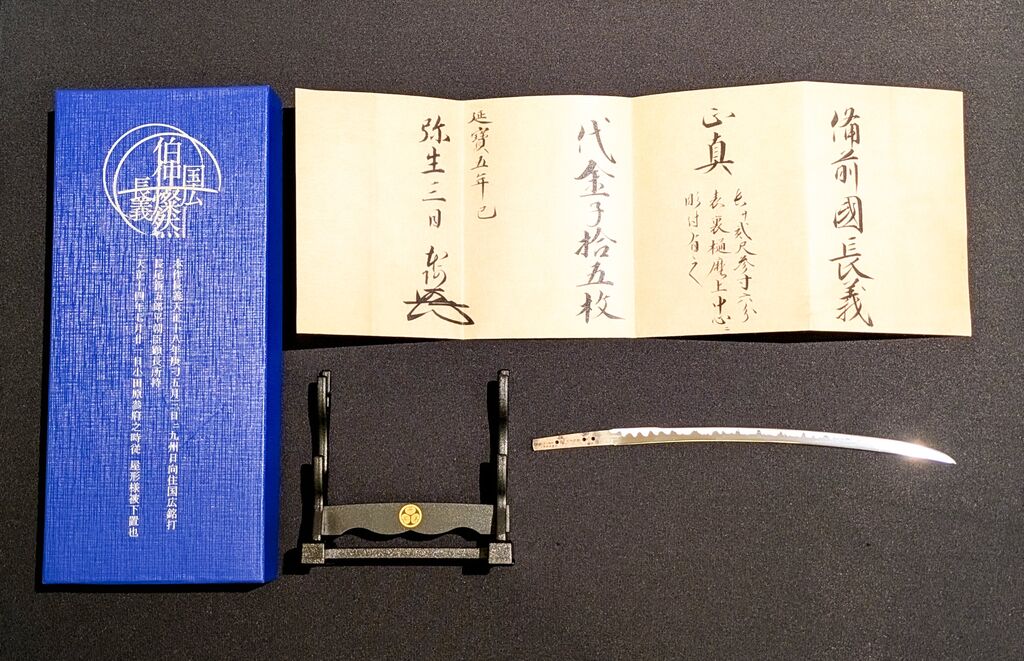 伯仲燦然
国広
長義
本作長義天正十八年庚寅五月三日ニ九州日向住国広銘打
長尾新五郎平朝臣顕長所持
天正十四年七月廿一日小田原参府之時従屋形様被下置也
備前國長義
正真
長サ貳尺参寸六分
表裏樋磨上中心ニ
彫付有之
代金子拾五枚
延寶五年巳
弥生三日